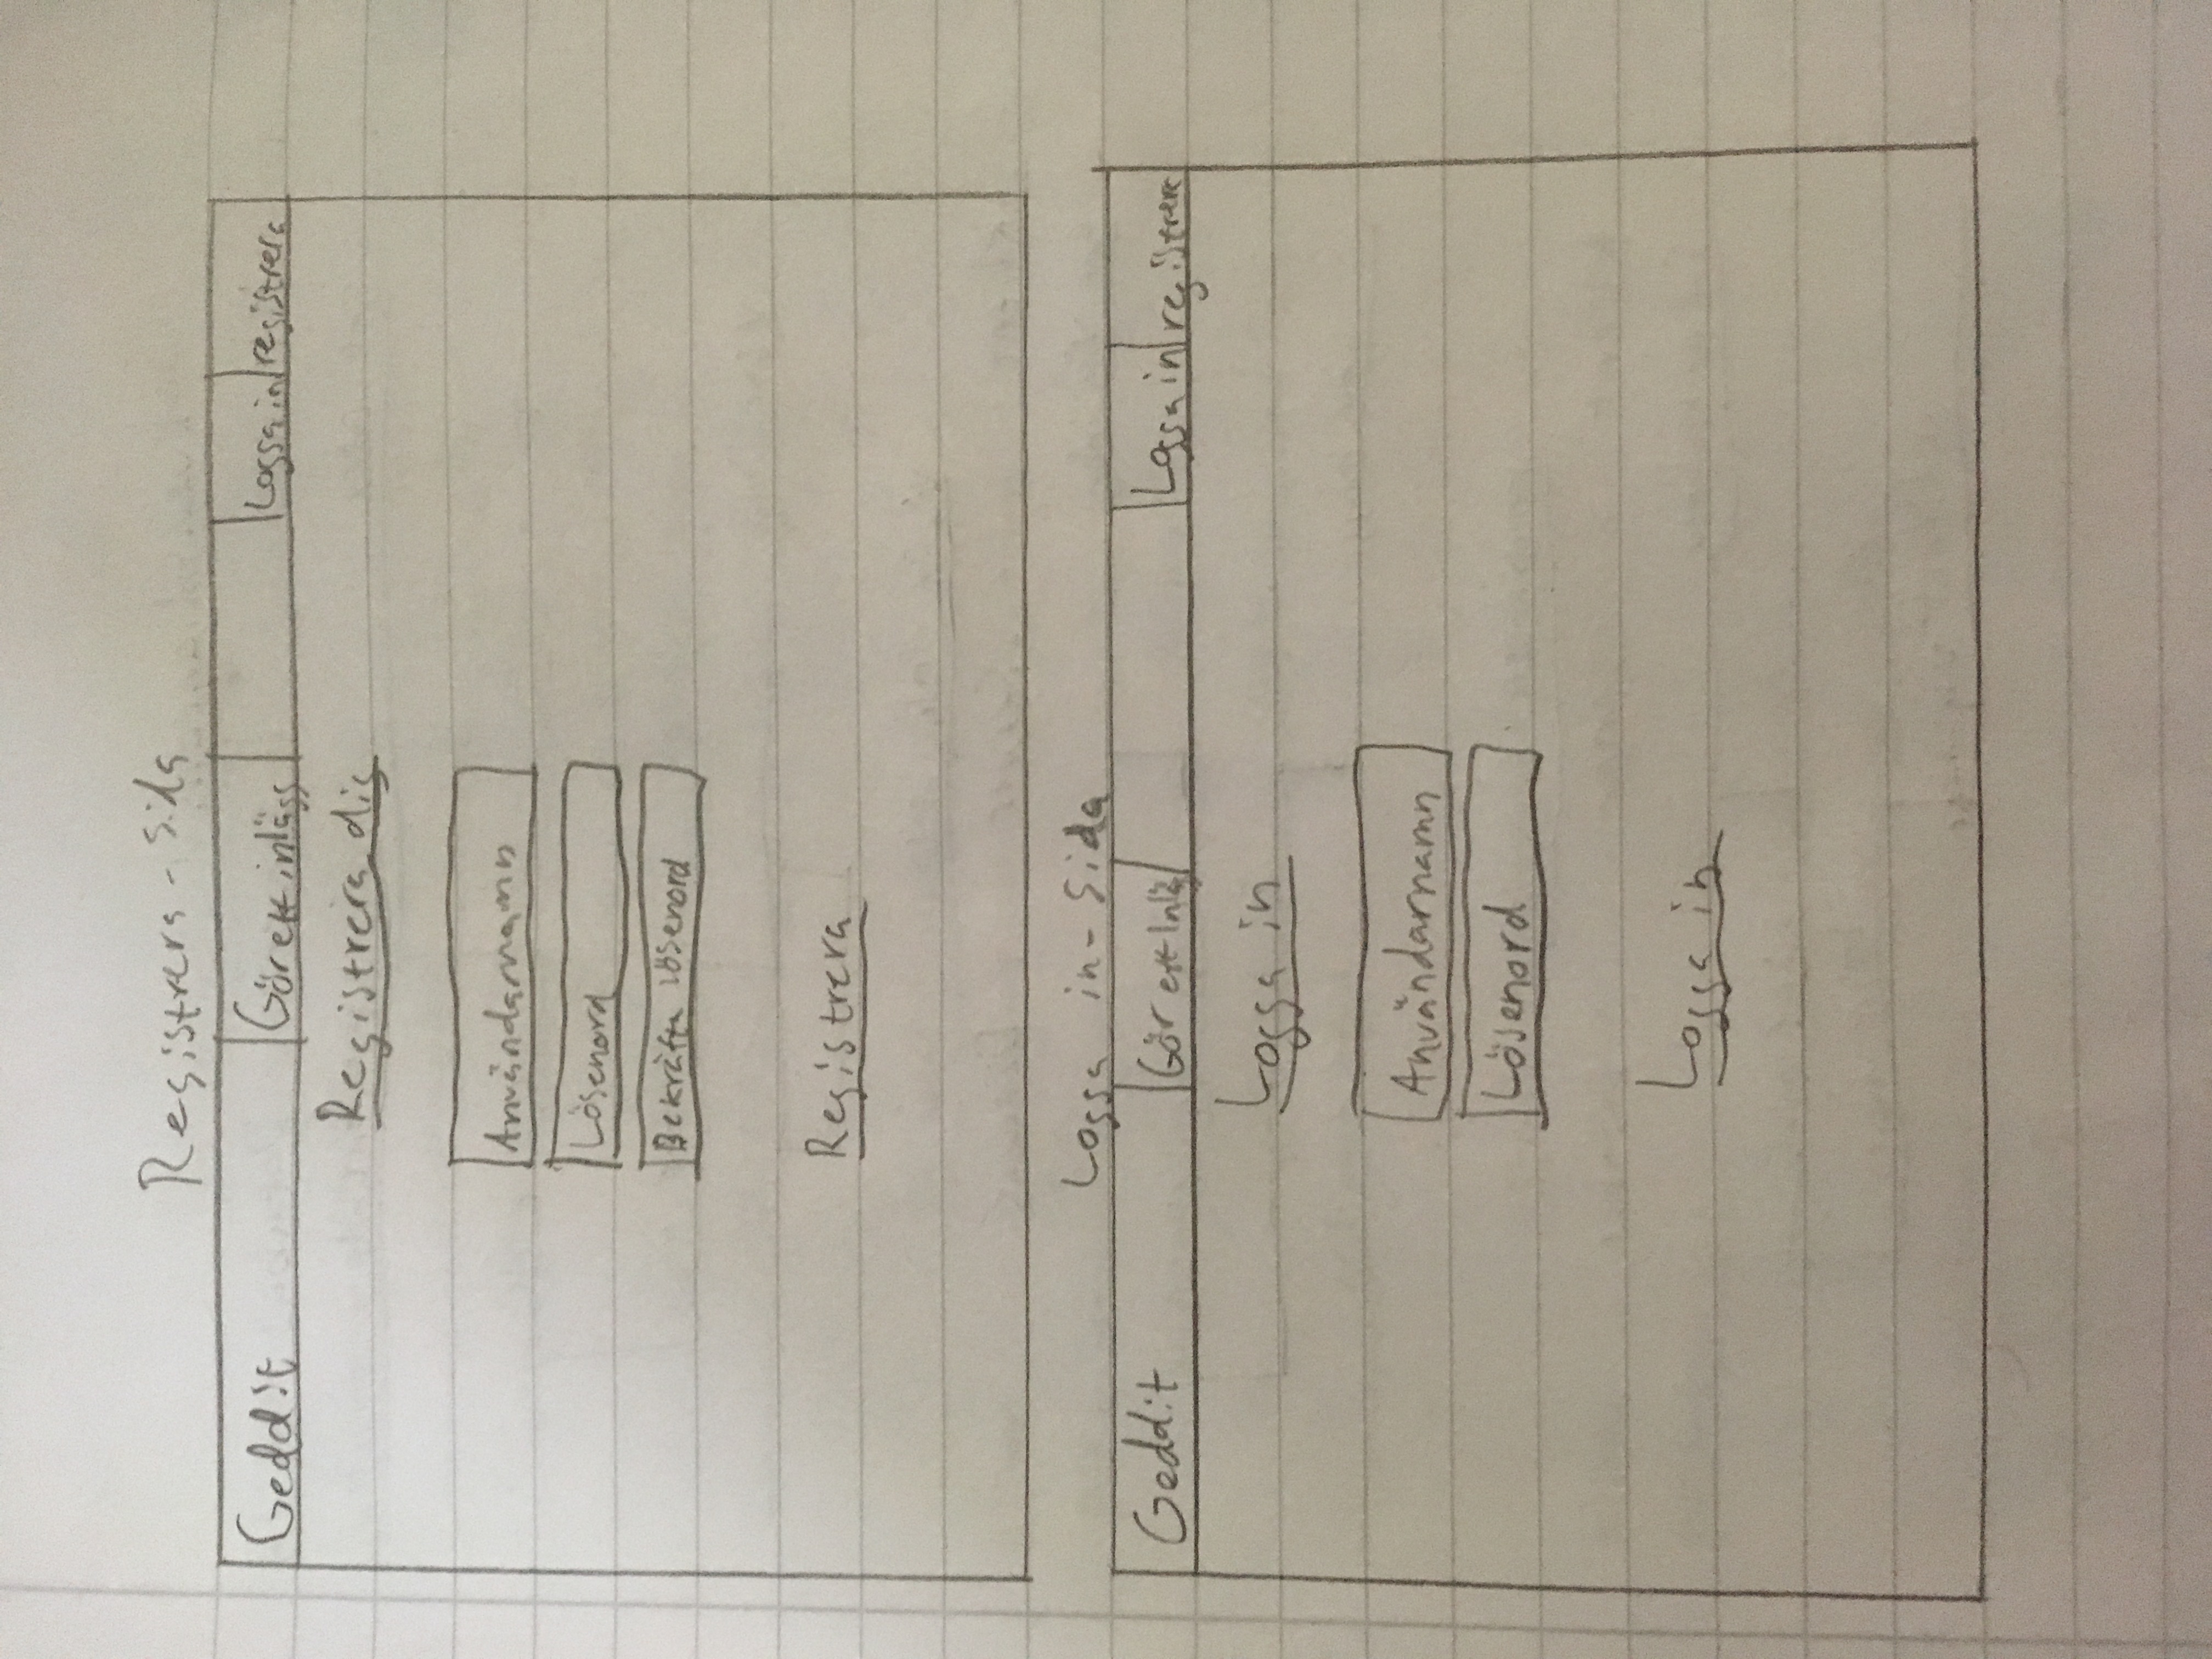 Registrera - Sida
Geddit Gör ett inlägg Logga in registrera
Registrera dig
Användarnamn
Lösenord
Bekräfta lösenord
Registrera
Logga in - Sida
Geddit Gör ett Inläg Logga in registrera
Logga in
Användarnamn
Lösenord
Logga in